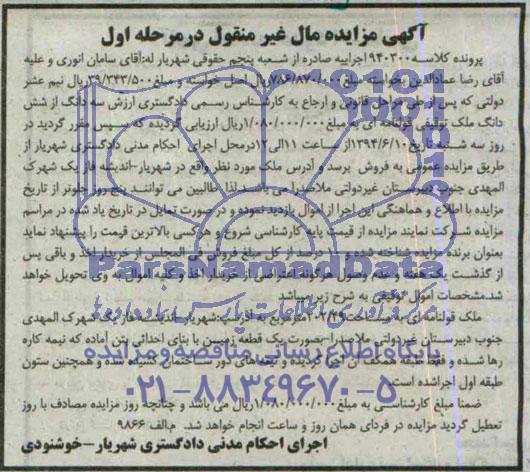 آگهی مزایده مال غیر منقول درمرحله اول
پرونده کلاسه ۹۴۰۳۰۰ اجراییه صادره از شعبه پنجم حقوقی شهریار له:آقای سامان انوری و علیه
آقای رضا عمادالدین بخواسته مبلغ ۷۸۶/۸۷۰/۰۰۰ریال اصل خواسته و مبلغ ۳۹/۳۴۳/۵۰۰ریال نیم عشر
دولتی که پس از طی مراحل قانونی و ارجاع به کارشناس رسمی دادگستری ارزش سه دانگ از شش
دانگ ملک توقیفی قولنامه ای به مبلغ ۱/۰۸۰/۰۰۰/۰۰۰ریال ارزیابی گردیده که سپس مقرر گردید در
روز سه شنبه تاریخ ۱۳۹۴/۶/۱۰از ساعت ۱۱الی۱۲درمحل اجرای احکام مدنی دادگستری شهریار از
طریق مزایده عمومی به فروش برسد و آدرس ملک مورد نظر واقع در شهریار-اندیشه فاز یک شهرک
المهدی جنوب دبیرستان غیردولتی ملاصدرا می باشد.لذا طالبین می توانند پنج روز جلوتر از تاریخ
مزایده با اطلاع و هماهنگی این اجرا از اموال بازدید نموده و در صورت تمایل در تاریخ یاد شده در مراسم
مزایده شرکت نمایند مزایده از قیمت پایه کارشناسی شروع و هرکسی بالاترین قیمت را پیشنهاد نماید
بعنوان برنده مزایده شناخته شده و ۱۰ درصد از کل مبلغ فروش فی المجلس از خریدار اخذ و باقی پس
از گذشت یک هفته و عدم وصول هرگونه اعتراضی از خریدار اخذ و کلیه اموال به وی تحویل خواهد
شد.مشخصات اموال توقیفی به شرح زیر میباشد
ملک قولنامه ای به مساحت مترمربع به آدرس:شهریار-اندیشه-فاز یک شهرک المهدی
جنوب دبیرستان غیردولتی ملاصدرا-بصورت یک قطعه زمین با بنای احداثی بتن آماده که نیمه کاره
رها شده و فقط طبقه همکف آن اجرا گردیده و تیغه های دور ساختمان کشیده شده و همچنین ستون
طبقه اول اجراشده است.
ضمنا مبلغ کارشناسی به مبلغ ۱/۰۸۰/۰۰۰/۰۰۰ریال می باشد و چنانچه روز مزایده مصادف با روز
تعطیل گردید مزایده در فردای همان روز و ساعت انجام خواهد شد. م.الف ۹۸۶۶
اجرای احکام مدنی دادگستری شهریار-خوشنودی
ParsNamadData
پایگاه اطلاع رسانی مناقصه و مزایده
۰۲۱-۸۸۳۴۹۶۷۰-۵